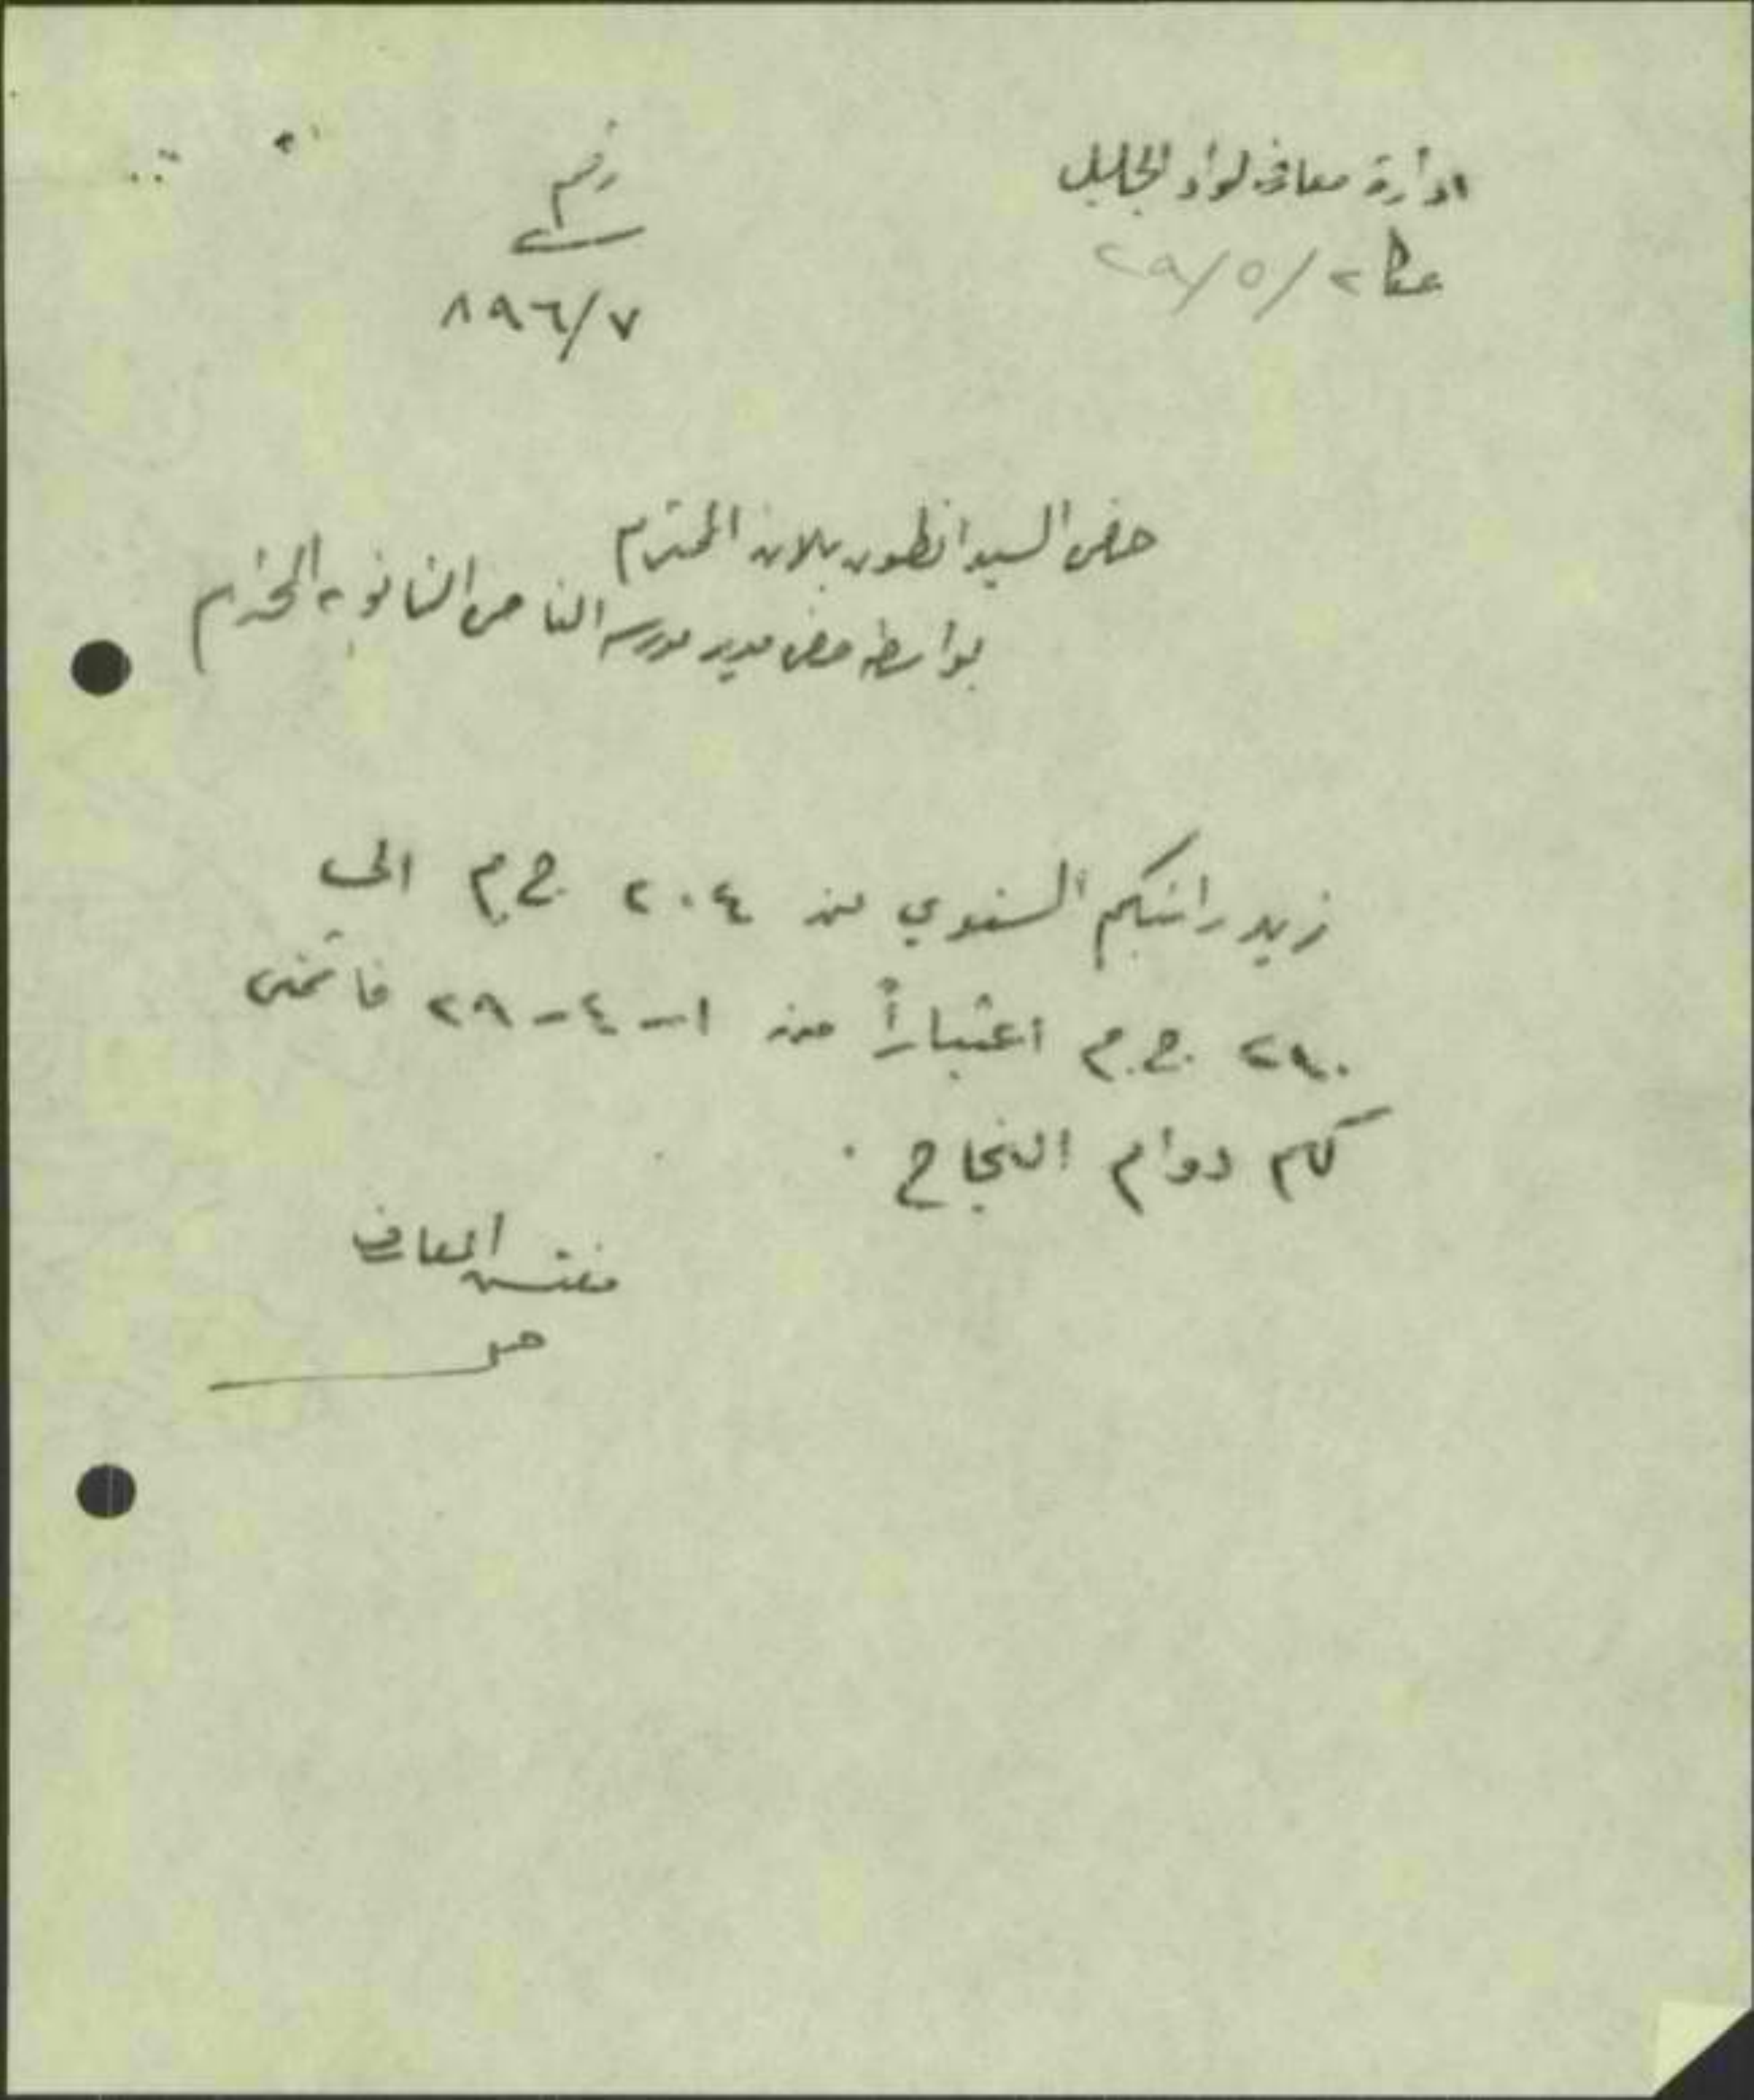 ادارة معارف لواء الجليل
عكا ٢/٥/٢٩
رقم
٨٩٦/٧
حضرة السيد انطون بلان المحترم
بواسطة حضرة مدير مدرسة الناصرة الثانوية المحترم
زيد راتبكم السنوي من ٢٠٤ ج.م الى
ج.م اعتباراً من ١-٤-٢٩ فاتمنى
لكم دوام النجاح .
مفتش المعارف